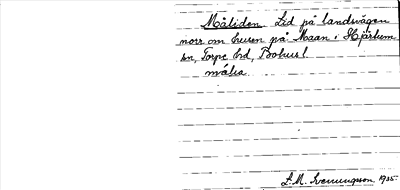 Måliden Lid på landsvägen
norr om husen på Maan i Hjärtum
sn, Torpe hd, Bohusl
målia
L.M. Svenungsson 1935.